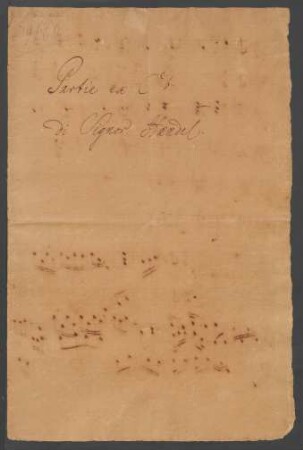 Partie ex C♭
di Signor Hændel.